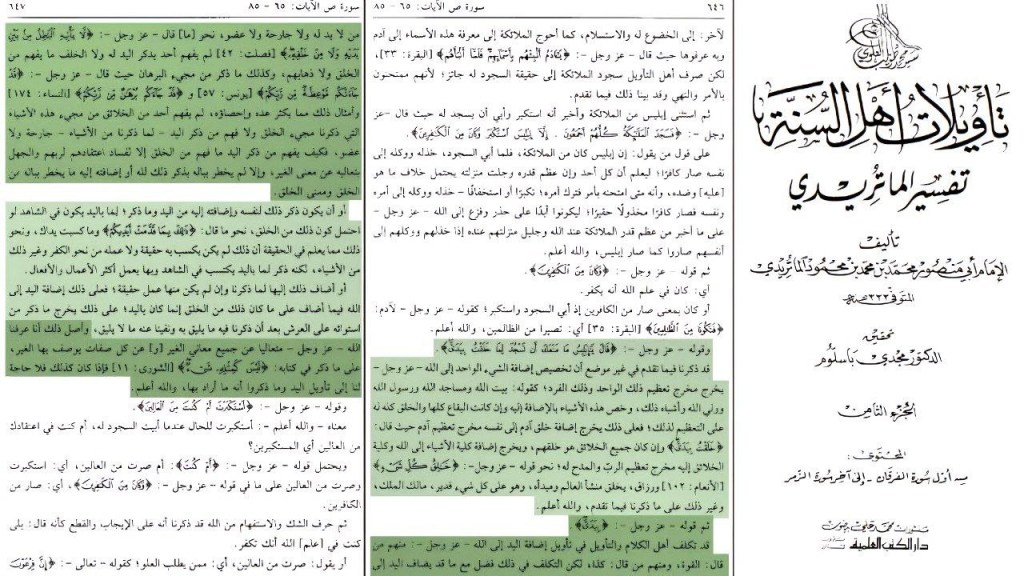 تأويلات أهل السنة
تفسير الماتريدي
تأليف
الإمام أبي منصور محمد بن محمد بن محمود الماتريدي
المتوفى ٣٣٣ هـ
تحقيق
الدكتور مجدي باسلوم
الجزء الثامن
المحتوى:
من أول سورة الفرقان - إلى آخر سورة الزمر
منشورات محمد علي بيضون
دار الكتب العلمية
٦٤٦
سورة ص الآيات: ٦٥ - ٨٥
لآخر: إلى الخضوع له والاستسلام، كما أحوج الملائكة إلى معرفة هذه الأسماء إلى آدم
وبه عرفوها حيث قال - عز وجل -: ﴿يَٰٓـَٔادَمُ أَنۢبِئْهُم بِأَسْمَآئِهِمْ فَلَمَّآ أَنۢبَأَهُم﴾ [البقرة: ٣٣]،
لكن صرف أهل التأويل سجود الملائكة إلى حقيقة السجود له جائز؛ لأنهم ممتحنون
بالأمر والنهي وقد بينا ذلك فيما تقدم.
ثم استثنى إبليس من الملائكة وأخبر أنه استكبر وأبى أن يسجد له حيث قال -عز
وجل -: ﴿فَسَجَدَ ٱلْمَلَٰٓئِكَةُ كُلُّهُمْ أَجْمَعُونَ . إِلَّآ إِبْلِيسَ ٱسْتَكْبَرَ وَكَانَ مِنَ ٱلْكَٰفِرِينَ﴾.
على قول من يقول: إن إبليس كان من الملائكة، فلما أبى السجود، خذله ووكله إلى
نفسه صار كافرًا؛ ليعلم أن كل أحد وإن عظم قدره وجلت منزلته يحتمل خلاف ما هو
[عليه] وضده، وأنه متى امتحنه بأمر فترك أمره؛ تكبرًا أو استخفافًا - خذله ووكله إلى أمره
ونفسه فصار كافرًا مخذولًا حقيرًا؛ ليكونوا أبدًا على حذر وفزع إلى الله - عز وجل -
على ما أخبر من عظم قدر الملائكة عند الله وجليل منزلتهم عنده إذا خذلهم ووكلهم إلى
أنفسهم صاروا كما صار إبليس، والله أعلم.
ثم قوله - عز وجل -: ﴿وَكَانَ مِنَ ٱلْكَٰفِرِينَ﴾.
أي: كان في علم الله أنه يكفر.
أو كان بمعنى صار من الكافرين إذ أبى السجود واستكبر؛ كقوله - عز وجل - لآدم:
﴿فَتَكُونَا مِنَ ٱلظَّٰلِمِينَ﴾ [البقرة: ٣٥] أي: تصيرا من الظالمين، والله أعلم.
وقوله - عز وجل -: ﴿قَالَ يَٰٓإِبْلِيسُ مَا مَنَعَكَ أَن تَسْجُدَ لِمَا خَلَقْتُ بِيَدَيَّ﴾.
قد ذكرنا فيما تقدم في غير موضع أن تخصيص إضافة الشيء الواحد إلى الله - عز وجل -
يخرج مخرج تعظيم ذلك الواحد وذلك الفرد؛ كقوله: بيت الله ومساجد الله ورسول الله
وولي الله وأشباه ذلك، وخص هذه الأشياء بالإضافة إليه وإن كانت البقاع كلها والخلق كله له
على التعظيم لذلك؛ فعلى ذلك يخرج إضافة خلق آدم إلى نفسه مخرج تعظيم آدم حيث قال:
﴿خَلَقْتُ بِيَدَيَّ﴾ وإن كان جميع الخلائق هو خلقهم، ويخرج إضافة كلية الأشياء إلى الله وكلية
الخلائق إليه مخرج تعظيم الرب والمدح له؛ نحو قوله -عز وجل-: ﴿خَٰلِقُ كُلِّ شَىْءٍ﴾
[الأنعام: ١٠٢] ورزاق، يخلق منشأ العالم ومبدأه، وهو على كل شيء قدير، مالك الملك،
وغير ذلك على ما ذكرنا فيما تقدم، والله أعلم.
ثم قوله - عز وجل -: ﴿بِيَدَيَّ﴾.
قد تكلف أهل الكلام والتأويل في تأويل إضافة اليد إلى الله - عز وجل -: منهم من
قال: القوة، ومنهم من قال: كذا، لكن التكلف في ذلك فضل مع ما قد يضاف اليد إلى
سورة ص الآيات: ٦٥ - ٨٥
٦٤٧
من لا يد له ولا جارحة ولا عضو، نحو [ما] قال - عز وجل -: ﴿لَّا يَأْتِيهِ ٱلْبَٰطِلُ مِنۢ بَيْنِ
يَدَيْهِ وَلَا مِنْ خَلْفِهِ﴾ [فصلت: ٤٢] لم يفهم أحد بذكر اليد له ولا الخلف ما يفهم من
الخلق ولا ذهابهم، وكذلك ما ذكر من مجيء البرهان حيث قال - عز وجل -: ﴿قَدْ
جَآءَتْكُم مَّوْعِظَةٌ مِّن رَّبِّكُمْ﴾ [يونس: ٥٧] و ﴿قَدْ جَآءَكُم بُرْهَٰنٌ مِّن رَّبِّكُمْ﴾ [النساء: ١٧٤]
وأمثال ذلك مما يكثر عده وإحصاؤه، لم يفهم أحد من الخلائق من مجيء هذه الأشياء
التي ذكرنا مجيء الخلق ولا فهم من ذكر اليد - لما ذكرنا من الأشياء - جارحة ولا
عضو، فكيف يفهم من ذكر اليد ما فهم من الخلق إلا لفساد اعتقادهم لربهم والجهل
بتعاليه عن معنى الغير، وإلا لم يخطر بباله بذكر ذلك لله أو إضافته إليه ما يخطر بباله من
الخلق ومعنى الخلق.
أو أن يكون ذكر ذلك لنفسه وإضافته إليه من اليد وما ذكر؛ لما باليد يكون في الشاهد لو
احتمل كون ذلك من الخلق، نحو ما قال: ﴿ذَٰلِكَ بِمَا قَدَّمَتْ أَيْدِيكُمْ﴾ وما كسبت يداك، ونحو
ذلك مما يعلم في الحقيقة أن ذلك لم يكن يكسب يد حقيقة ولا عمله من نحو الكفر وغير ذلك
من الأشياء، لكنه ذكر لما باليد يكتسب في الشاهد وبها يعمل أكثر الأعمال والأفعال.
أو أضاف ذلك إليها لما ذكرنا وإن لم يكن منها عمل حقيقة؛ فعلى ذلك إضافة اليد إلى
الله فيما أضاف على ما كان ذلك من الخلق إنما كان باليد؛ على ذلك يخرج ما ذكر من
استوائه على العرش بعد أن ذكرنا فيه ما يليق به ونفينا عنه ما لا يليق، وأصل ذلك أنا عرفنا
الله - عز وجل - متعاليا عن جميع معاني الغير [و] عن كل صفات يوصف بها الغير،
على ما ذكر في كتابه: ﴿لَيْسَ كَمِثْلِهِ شَىْءٌ﴾ [الشورى: ١١] فإذا كان كذلك فلا حاجة
لنا إلى تأويل اليد وما ذكروا أنه ما أراد بها، والله أعلم.
وقوله - عز وجل -: ﴿أَسْتَكْبَرْتَ أَمْ كُنتَ مِنَ ٱلْعَالِينَ﴾.
معناه - والله أعلم -: أستكبرت للحال عندما أبيت السجود له، أم كنت في اعتقادك
من العالين أي المستكبرين؟
ويحتمل قوله - عز وجل -: ﴿أَمْ كُنتَ﴾: أم صرت من العالين، أي: استكبرت
وصرت من العالين على ما في قوله - عز وجل -: ﴿وَكَانَ مِنَ ٱلْكَٰفِرِينَ﴾، أي: صار من
الكافرين.
ثم حرف الشك والاستفهام من الله قد ذكرنا أنه على الإيجاب والقطع كأنه قال: بلى
كنت في [علم] الله أنك تكفر.
أو يقول: صرت من العالين، أي: ممن يطلب العلو؛ كقوله - تعالى -: ﴿إِنَّ فِرْعَوْنَ